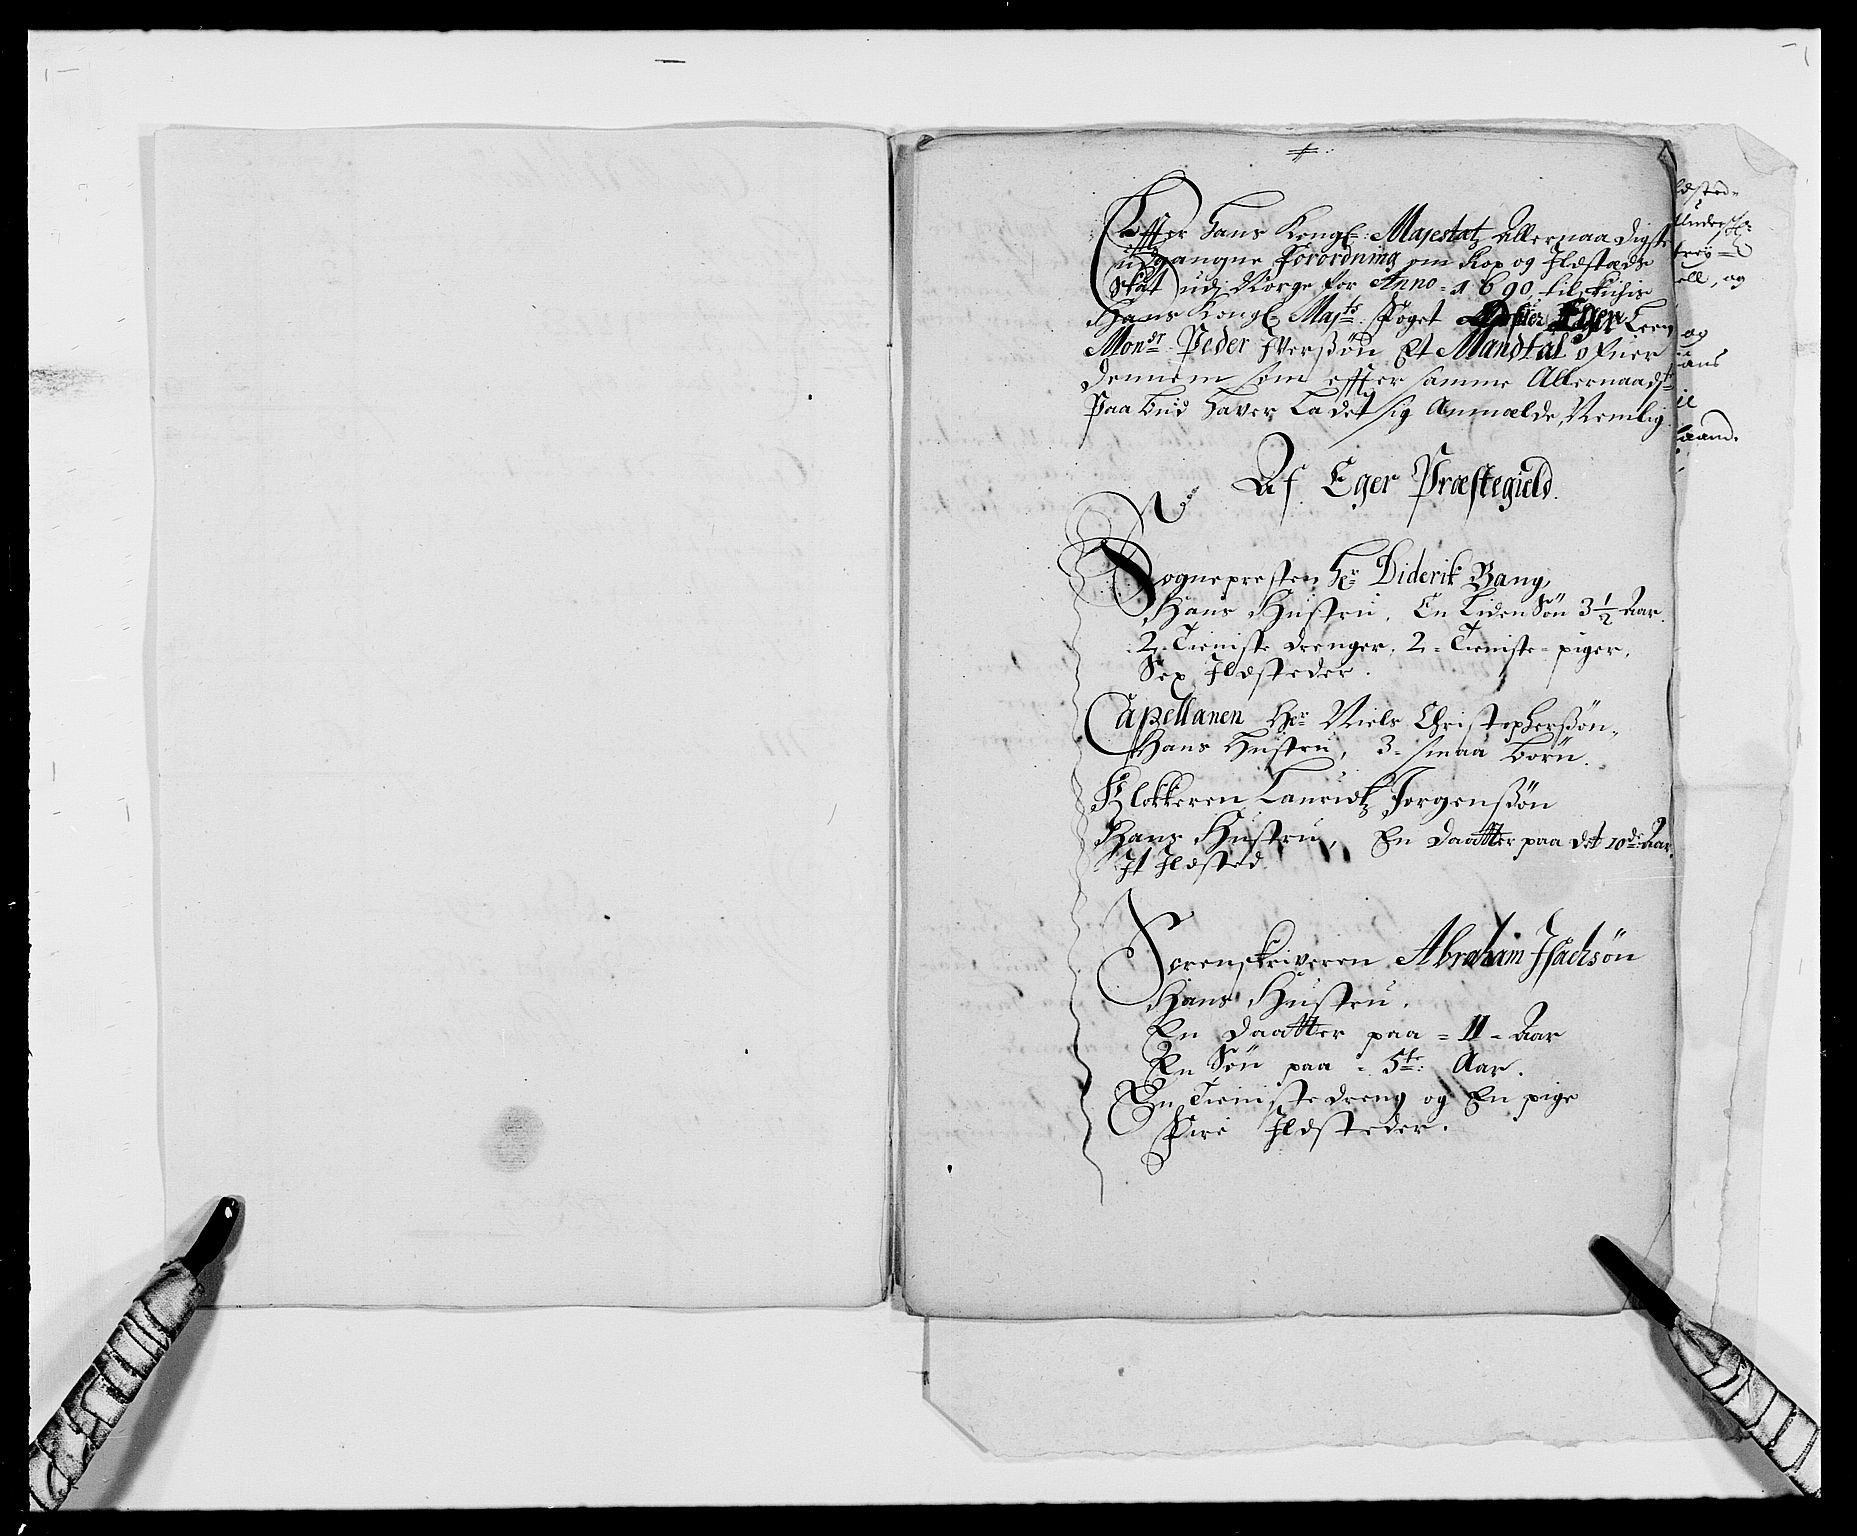 Effter Hans Kongl: Majestatz Allernaadigste
udgangne Forordning om Kop og Ildstæds
Skat udj Norge for Anno 1690, tilskichis
Hans Kongl Majts: Foget Eger Leen
Monsr Peder Iverssøn Et Mandtal ofuer
dennem som effter samme Allernaadste
Paabud haver Ladet sig Anmælde, Nemlig
Af Eger Præstegield.
Sognepresten Hr Diderik Bang,
Hans Hustru, En Liden Søn 3 1/2 Aar.
2 Tieniste drenger, 2 = Tieniste = piger,
Sex Ildsteder.
Capellanen Her Niels Christopherssøn,
Hans Hustru, 3 = smaa Børn.
Klokkeren Lauridtz Jørgenssøn
Hans Hustru, En Daatter paa det 10de Aar,
It Ildsted.
Sorenskriveren Abraham Isachsøn
Hans Hustru.
En Daatter paa = 11 = Aar
En Søn paa = 5te: Aar.
En Tieniste dreng og En pige
Fire Ildsteder.
ldsted=
ell, og
og
ans
il